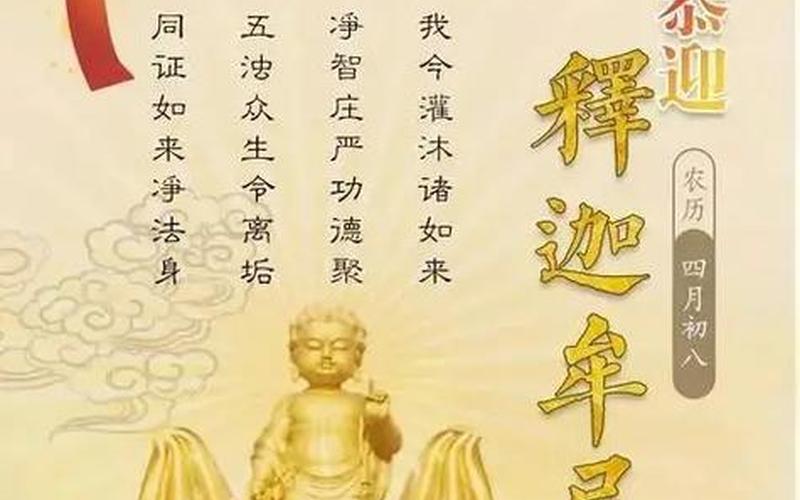 恭迎
釋迦牟尼
农历
四月初八
我今灌沐诸如来
净智庄严功德聚
五浊众生令离垢
同证如来净法身